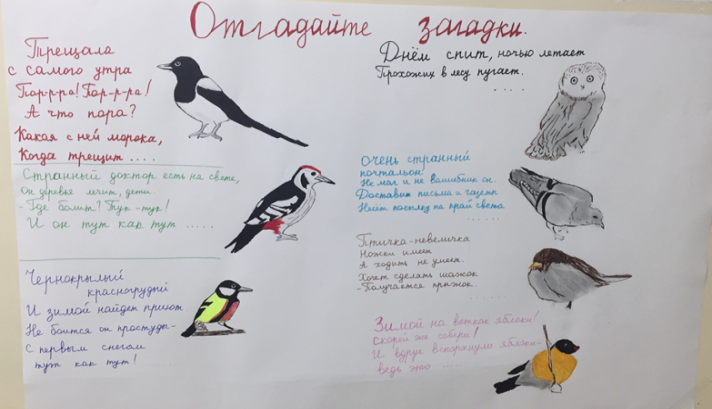 Отгадайте загадки.
Трещала
с самого утра
Пор-р-ра! Пор-р-ра!
А что пора?
Какая с ней морока,
Когда трещит ....
Странный доктор есть на свете,
Он деревья лечит, дети
- Где болит? Тук-тук!
И он тут как тут .....
Чернокрылый
красногрудый
И зимой найдет приют
Не боится он простуды-
С первым снегом
тут как тут!
Днём спит, ночью летает
Прохожих в лесу пугает.
....
Очень странный
почтальон:
Не маг и не волшебник он.
Доставит письма и газету
Найти посылку на край света
......
Птичка-невеличка
Ножки имеет
А ходить не умеет.
Хочет сделать шажок
-Получается прыжок.
......
Зимой на ветках яблоки!
Скорей же собери!
И вдруг вспорхнули яблоки-
ведь это ......